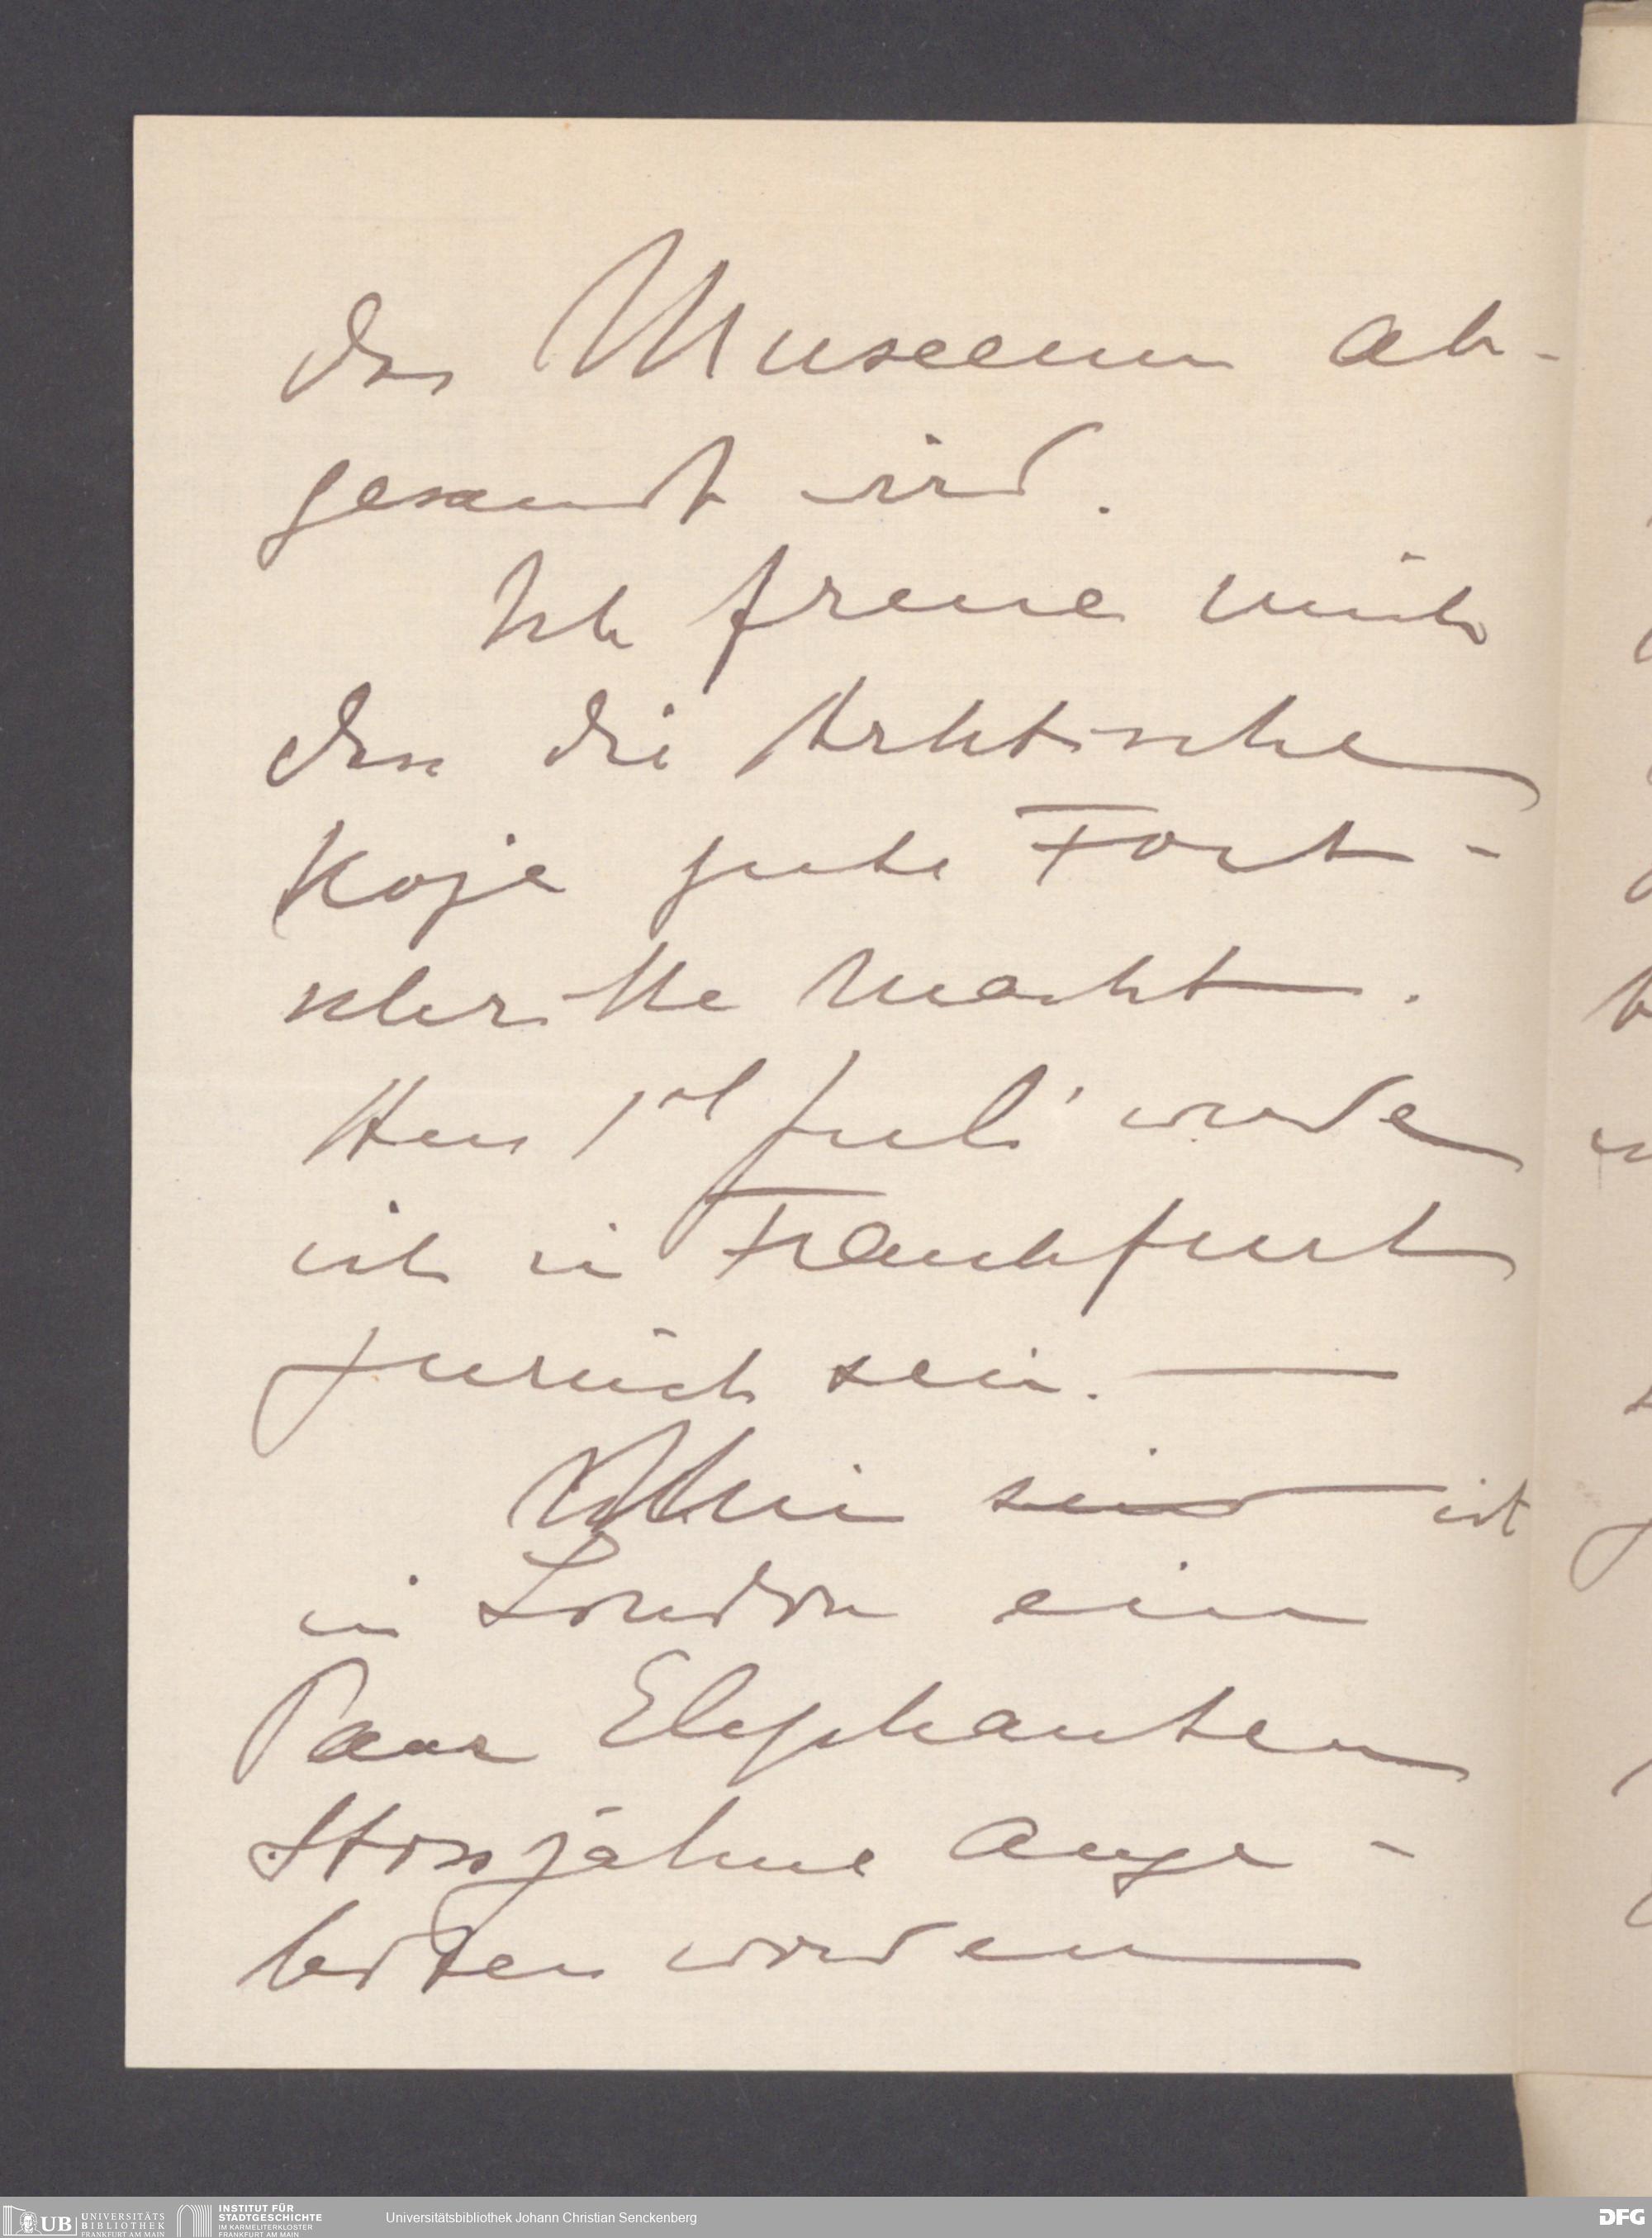 das Museeum ab-
gesandt wird.
Ich freue mich
dass die Arktische
Koje gute Fort-
schritte macht.
Am 1st Juli werde
ich in Frankfurt
zurück sein. —
Mir sind ist
in London ein
Paar Elephanten
Stosszähne ange-
boten worden
UB UNIVERSITÄTS
BIBLIOTHEK
FRANKFURT AM MAIN
INSTITUT FÜR
STADTGESCHICHTE
IM KARMELITERKLOSTER
FRANKFURT AM MAIN
Universitätsbibliothek Johann Christian Senckenberg
DFG